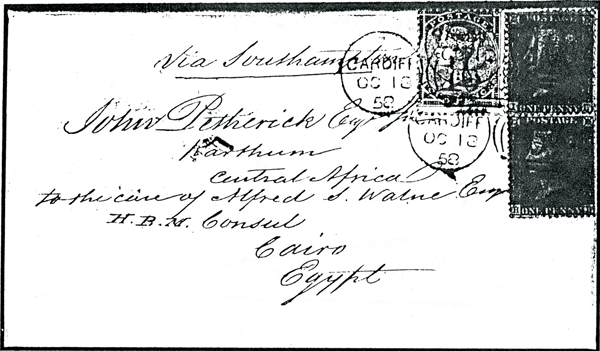 Via Southampton
John Petherick Esq
Karthum
Central Africa
to the care of Alfred S. Walne Esq
H. B. M. Consul
Cairo
Egypt
CARDIFF
OC 12
58
CARDIFF
OC 12
58
POSTAGE
POSTAGE
ONE PENNY
POSTAGE
ONE PENNY